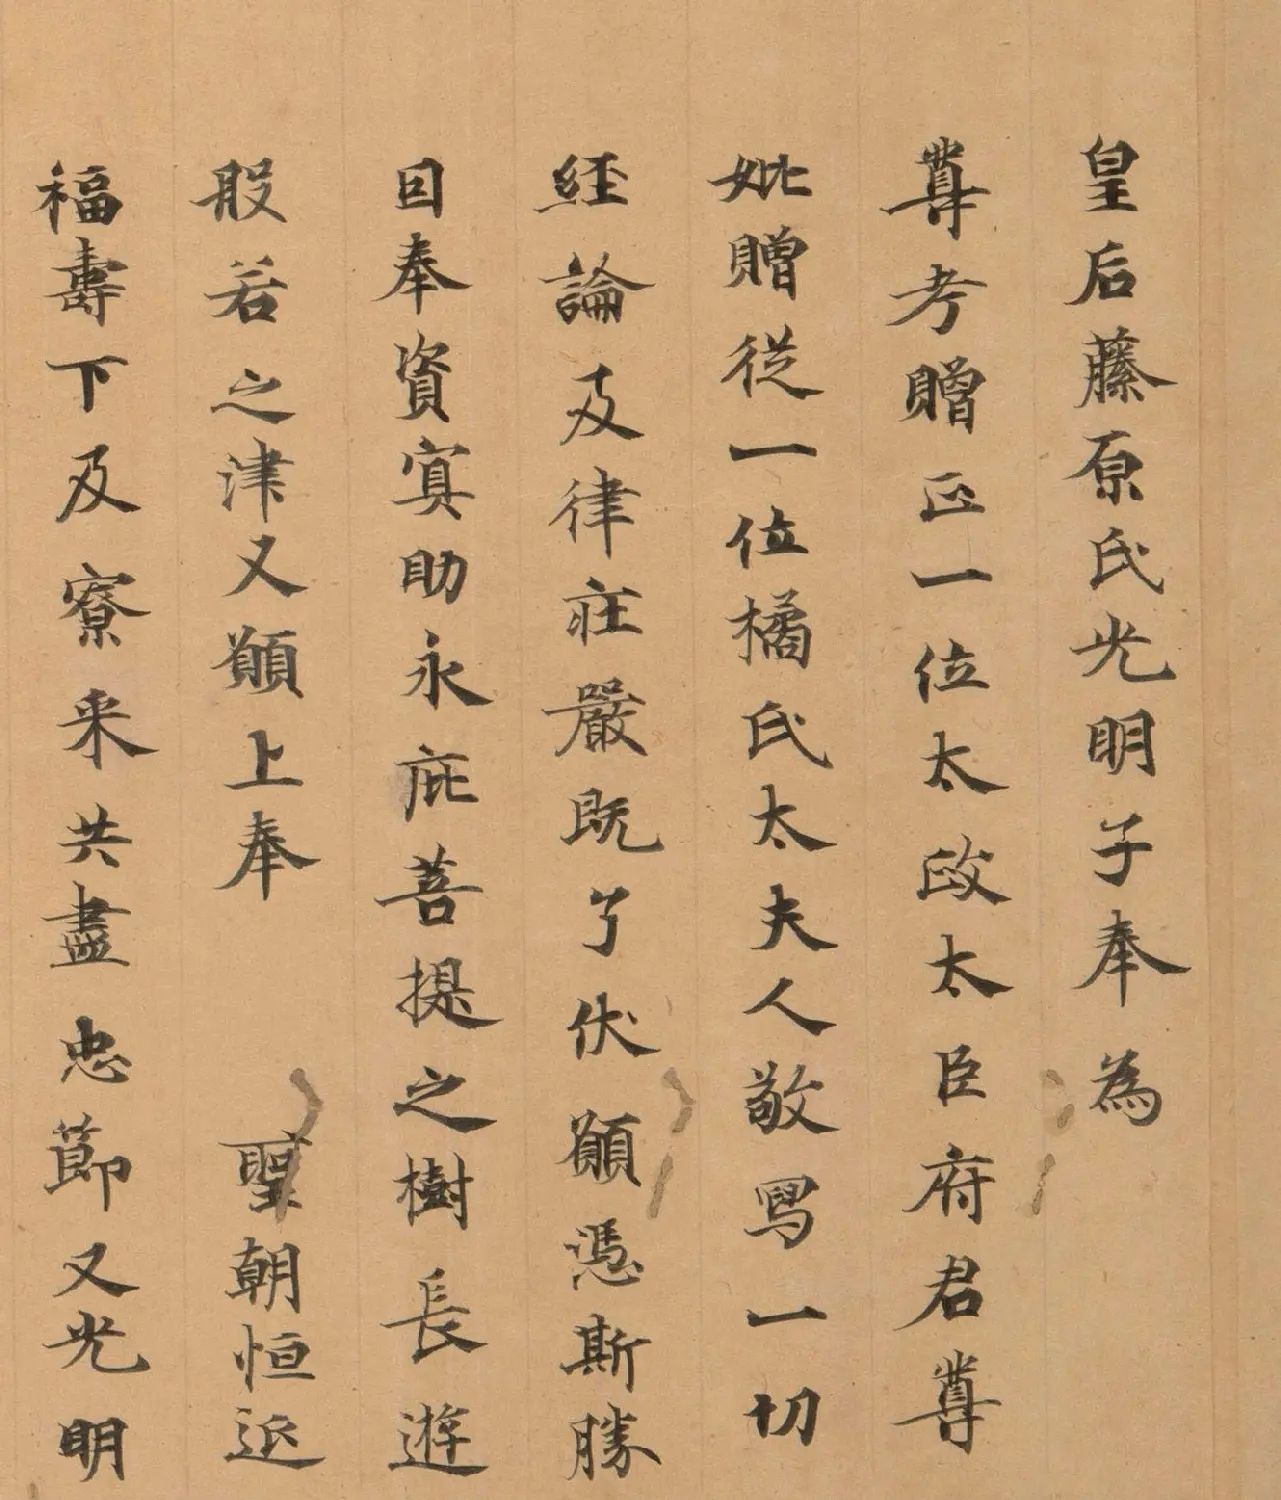 皇后藤原氏光明子奉為
尊考贈正一位太政太臣府君尊
妣贈従一位橘氏太夫人敬寫一切
経論及律荘嚴既了伏願憑斯勝
因奉資冥助永庇菩提之樹長遊
般若之津又願上奉　聖朝恒延
福壽下及寮采共盡忠節又光明